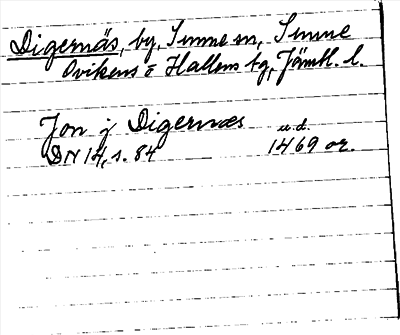 Digernäs, by, Sunne sn, Sunne
Ovikens o Hallens tg, Jämtl. l.
Jon j Digernæs u.d.
DN 14, s. 84 1469 or.